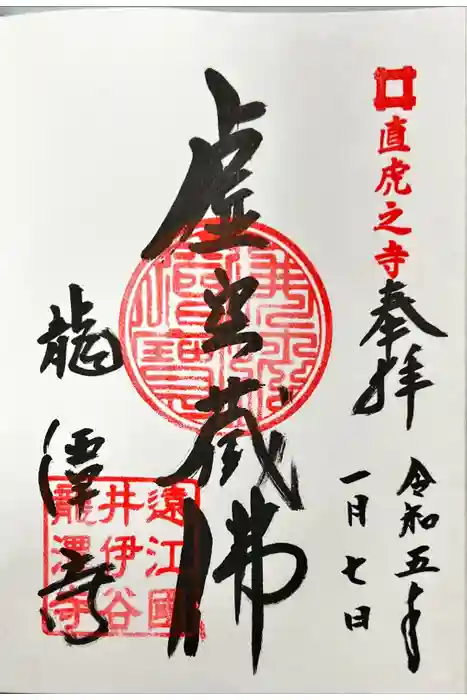 直虎之寺
奉拝
令和五年
一月七日
虚空蔵佛
龍潭寺
遠江國
井伊谷
龍潭寺